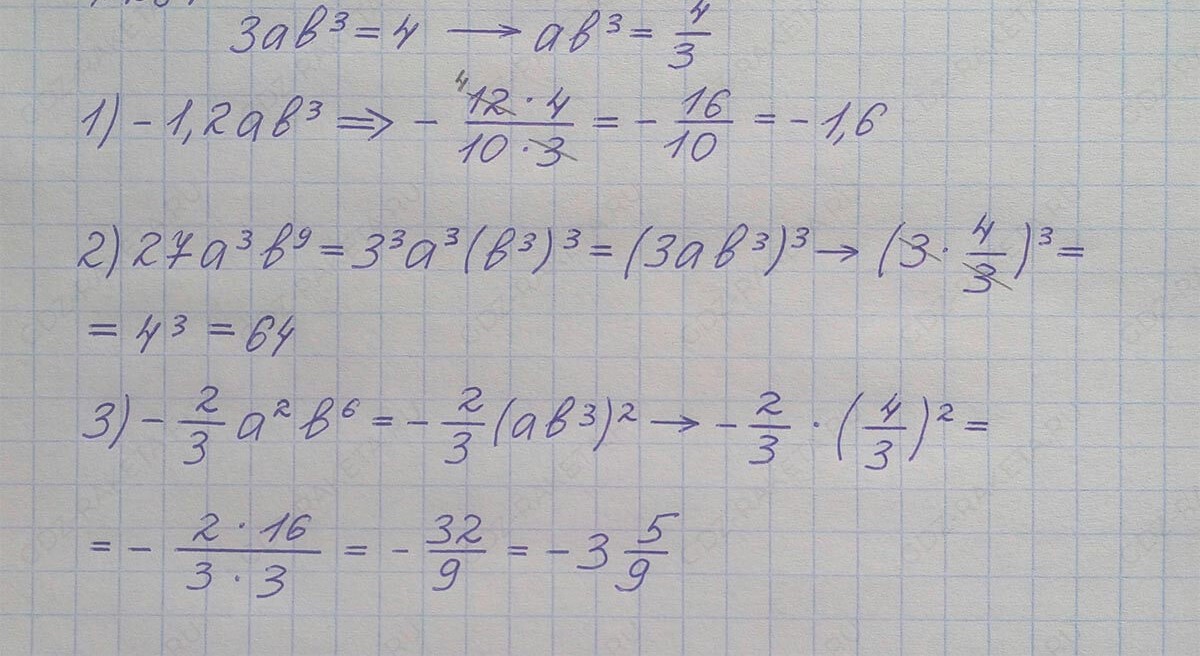 3ab³ = 4 → ab³ = 4/3
1) - 1,2ab³ ⇒ - 4 12 · 4 / 10 · 3 = - 16/10 = - 1,6
2) 27a³b⁹ = 3³a³(b³)³ = (3ab³)³ → (3 · 4/3)³ =
= 4³ = 64
3) - 2/3 a²b⁶ = - 2/3 (ab³)² → - 2/3 · (4/3)² =
= - 2 · 16 / 3 · 3 = - 32/9 = - 3 5/9